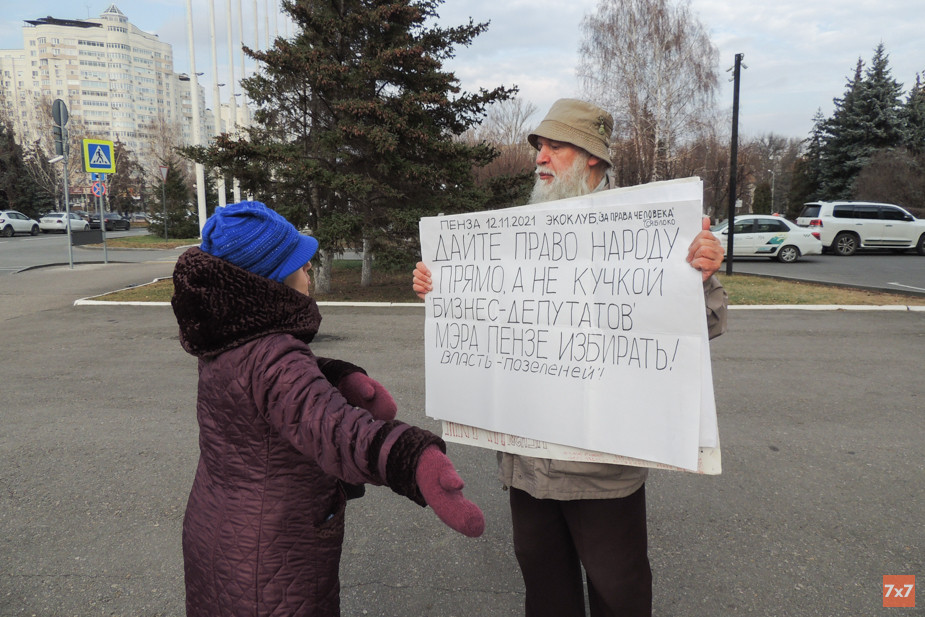 ПЕНЗА 12.11.2021 ЭКОКЛУБ "ЗА ПРАВА ЧЕЛОВЕКА"
ЯБЛОКО
ДАЙТЕ ПРАВО НАРОДУ
ПРЯМО, А НЕ КУЧКОЙ
БИЗНЕС-ДЕПУТАТОВ
МЭРА ПЕНЗЕ ИЗБИРАТЬ!
ВЛАСТЬ - ПОЗЕЛЕНЕЙ!
7x7